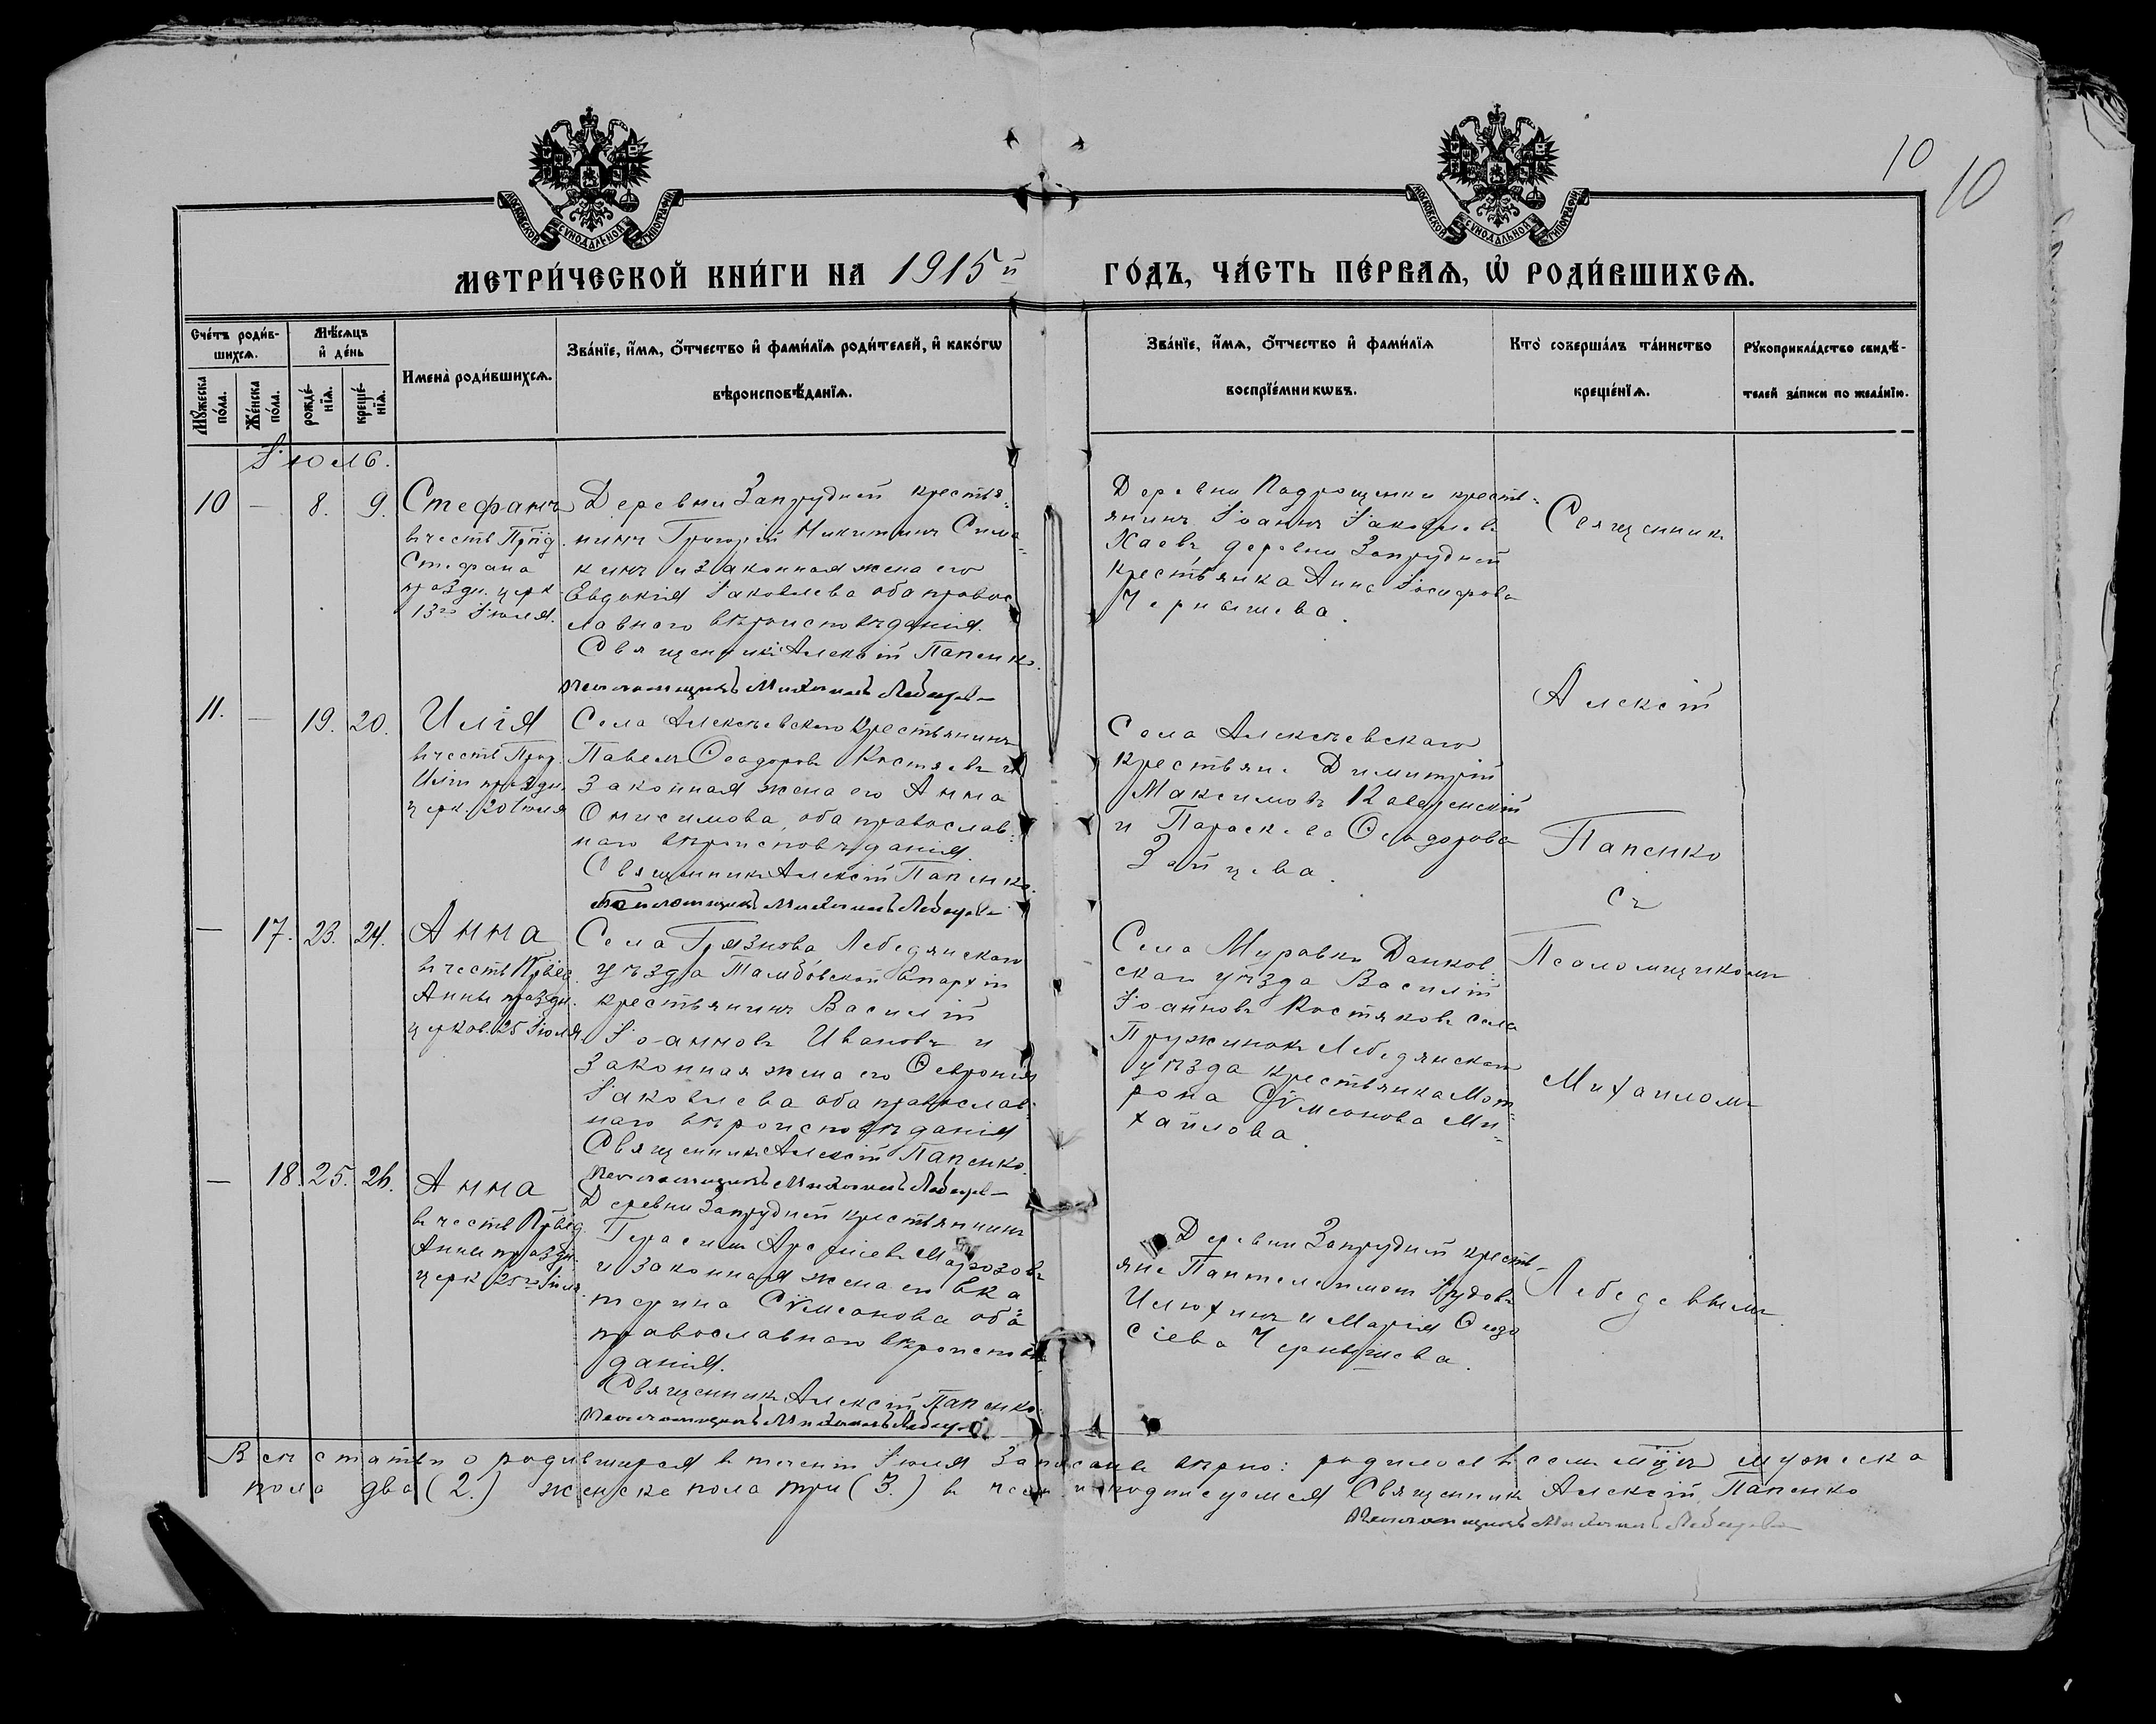 10
10
МОСКОВСКОЙ СѴНОДАЛЬНОЙ ТИПОГРАФІИ
МОСКОВСКОЙ СѴНОДАЛЬНОЙ ТИПОГРАФІИ
МЕТРИ́ЧЕСКОЙ КНИ́ГИ НА 1915й
ГО́ДЪ, ЧА́СТЬ ПЕ́РВАѦ, Ѡ҆ РОДИ́ВШИХСѦ.
Сче́тъ роди́в-
шихсѧ.
Мѣ́сѧцъ
и҆ де́нь
Имена̀ роди́вшихсѧ.
Зва́нїе, и҆́мѧ, ѻ҆́тчество и҆ фами́лїѧ роди́телей, и҆ како́гѡ
вѣроисповѣ́данїѧ.
Мꙋ́жеска
по́ла.
Же́нска
по́ла.
рожде́-
нїѧ.
креще́-
нїѧ.
Зва́нїе, и҆́мѧ, ѻ҆́тчество и҆ фами́лїѧ
воспрїе́мникѡвъ.
Кто̀ соверша́лъ та́инство
креще́нїѧ.
Рꙋкоприкла́дство свидѣ́-
телей за́писи по жела́нїю.
Іюль.
10 — 8. 9. Стефанъ
въ честь Прпд.
Стефана
праздн. церк.
13го Іюля.
Деревни Запрудней крестья-
нинъ Григорій Никитинъ
кинъ и законная жена его
Евдокія Іаковлева оба правос
лавнаго вѣроисповѣданія.
Священникъ Алексій Папенко.
Псаломщикъ Михаилъ Лебедевъ
Деревни крестъ-
янинъ Іоаннъ Іаковлевъ
Хаевъ деревни Запрудней
крестьянка Анна Іосифова
Чернышева.
Священникъ
11. — 19. 20. Илія
въ честь Прор.
Иліи праздн.
церк. 20 Іюля
Села Алексѣевскаго крестьянинъ
Павелъ Ѳеодоровъ и
законная жена его Анна
Онисимова, оба православ-
наго вѣроисповѣданія.
Священникъ Алексій Папенко.
Псаломщикъ Михаилъ Лебедевъ
Села Алексѣевскаго
крестьян. Димитрій
Максимовъ
и Параскева Ѳеодорова
Зайцева.
Алексій
Папенко
съ
— 17. 23. 24. Анна
въ честь Првед.
Анны праздн.
церков. 25 Іюля
Села Грязнова Лебедянскаго
уѣзда Тамбовской Епархіи
крестьянинъ Василій
Іоанновъ Ивановъ и
законная жена его Ѳевронія
Іаковлева оба православ-
наго вѣроисповѣданія
Священникъ Алексій Папенко.
Псаломщикъ Михаилъ Лебедевъ
Села Муравки Данков-
скаго уѣзда Василій
Іоанновъ Костяковъ села
Пружинокъ Лебедянскаго
уѣзда крестьянка Мат-
рона Сѵмеонова Ми-
хайлова.
Псаломщикомъ
Михаиломъ
— 18. 25. 26. Анна
въ честь Првед.
Анны праздн.
церк. 25го Іюля.
Деревни Запрудней крестьянинъ
Герасимъ Арсеніевъ Марозовъ
и законная жена его Ека
терина Сѵмеонова оба
православнаго вѣроисповѣ
данія.
Священникъ Алексій Папенко.
Псаломщикъ Михаилъ Лебедевъ
Деревни Запрудней кресть-
яне Пантелеимонъ Іудовъ
Илюхинъ и Марія Ѳеодо
сіева Чернышева.
Лебедевымъ.
Всѣ статьи о родившихся въ теченіи Іюля записаны вѣрно: родилось въ семъ мцѣ мужеска
пола два (2.) женска пола три (3.) въ чемъ и подписуемся Священникъ Алексій Папенко
Псаломщикъ Михаилъ Лебедевъ